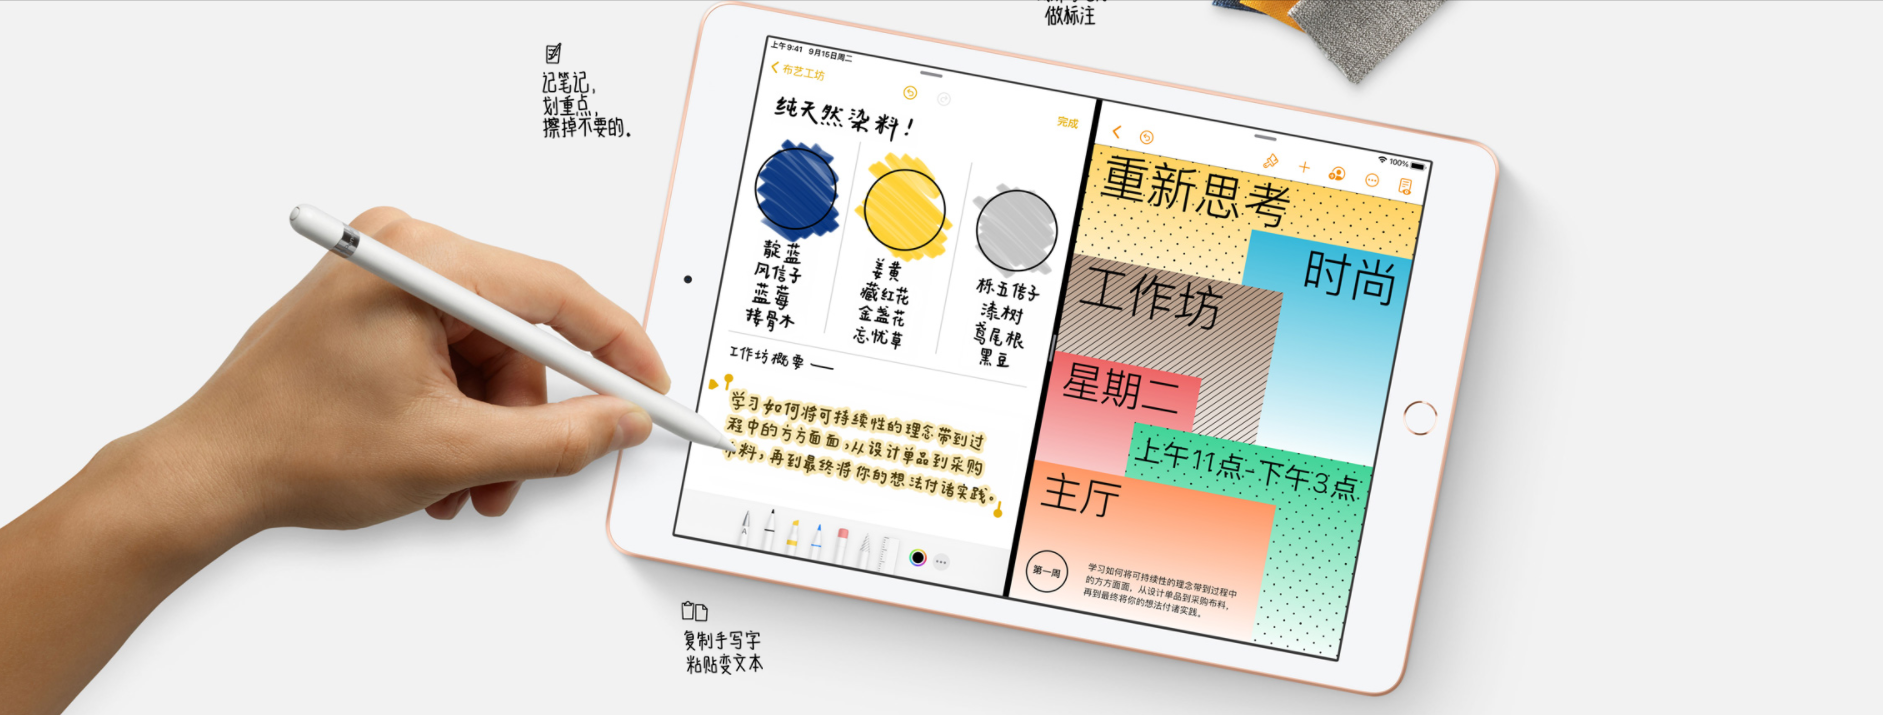 做标注
记笔记,
划重点,
擦掉不要的。
上午9:41 9月15日周二
布艺工坊
完成
纯天然染料！
靛蓝
风信子
蓝莓
接骨木
姜黄
藏红花
金盏花
忘忧草
栎五倍子
漆树
鸢尾根
黑豆
工作坊概要 —
学习如何将可持续性的理念带到过
程中的方方面面，从设计单品到采购
料，再到最终将你的想法付诸实践。
100%
重新思考
时尚
工作坊
星期二
上午11点-下午3点
主厅
第一周
学习如何将可持续性的理念带到过程中
的方方面面，从设计单品到采购布料，
再到最终将你的想法付诸实践。
复制手写字
粘贴变文本